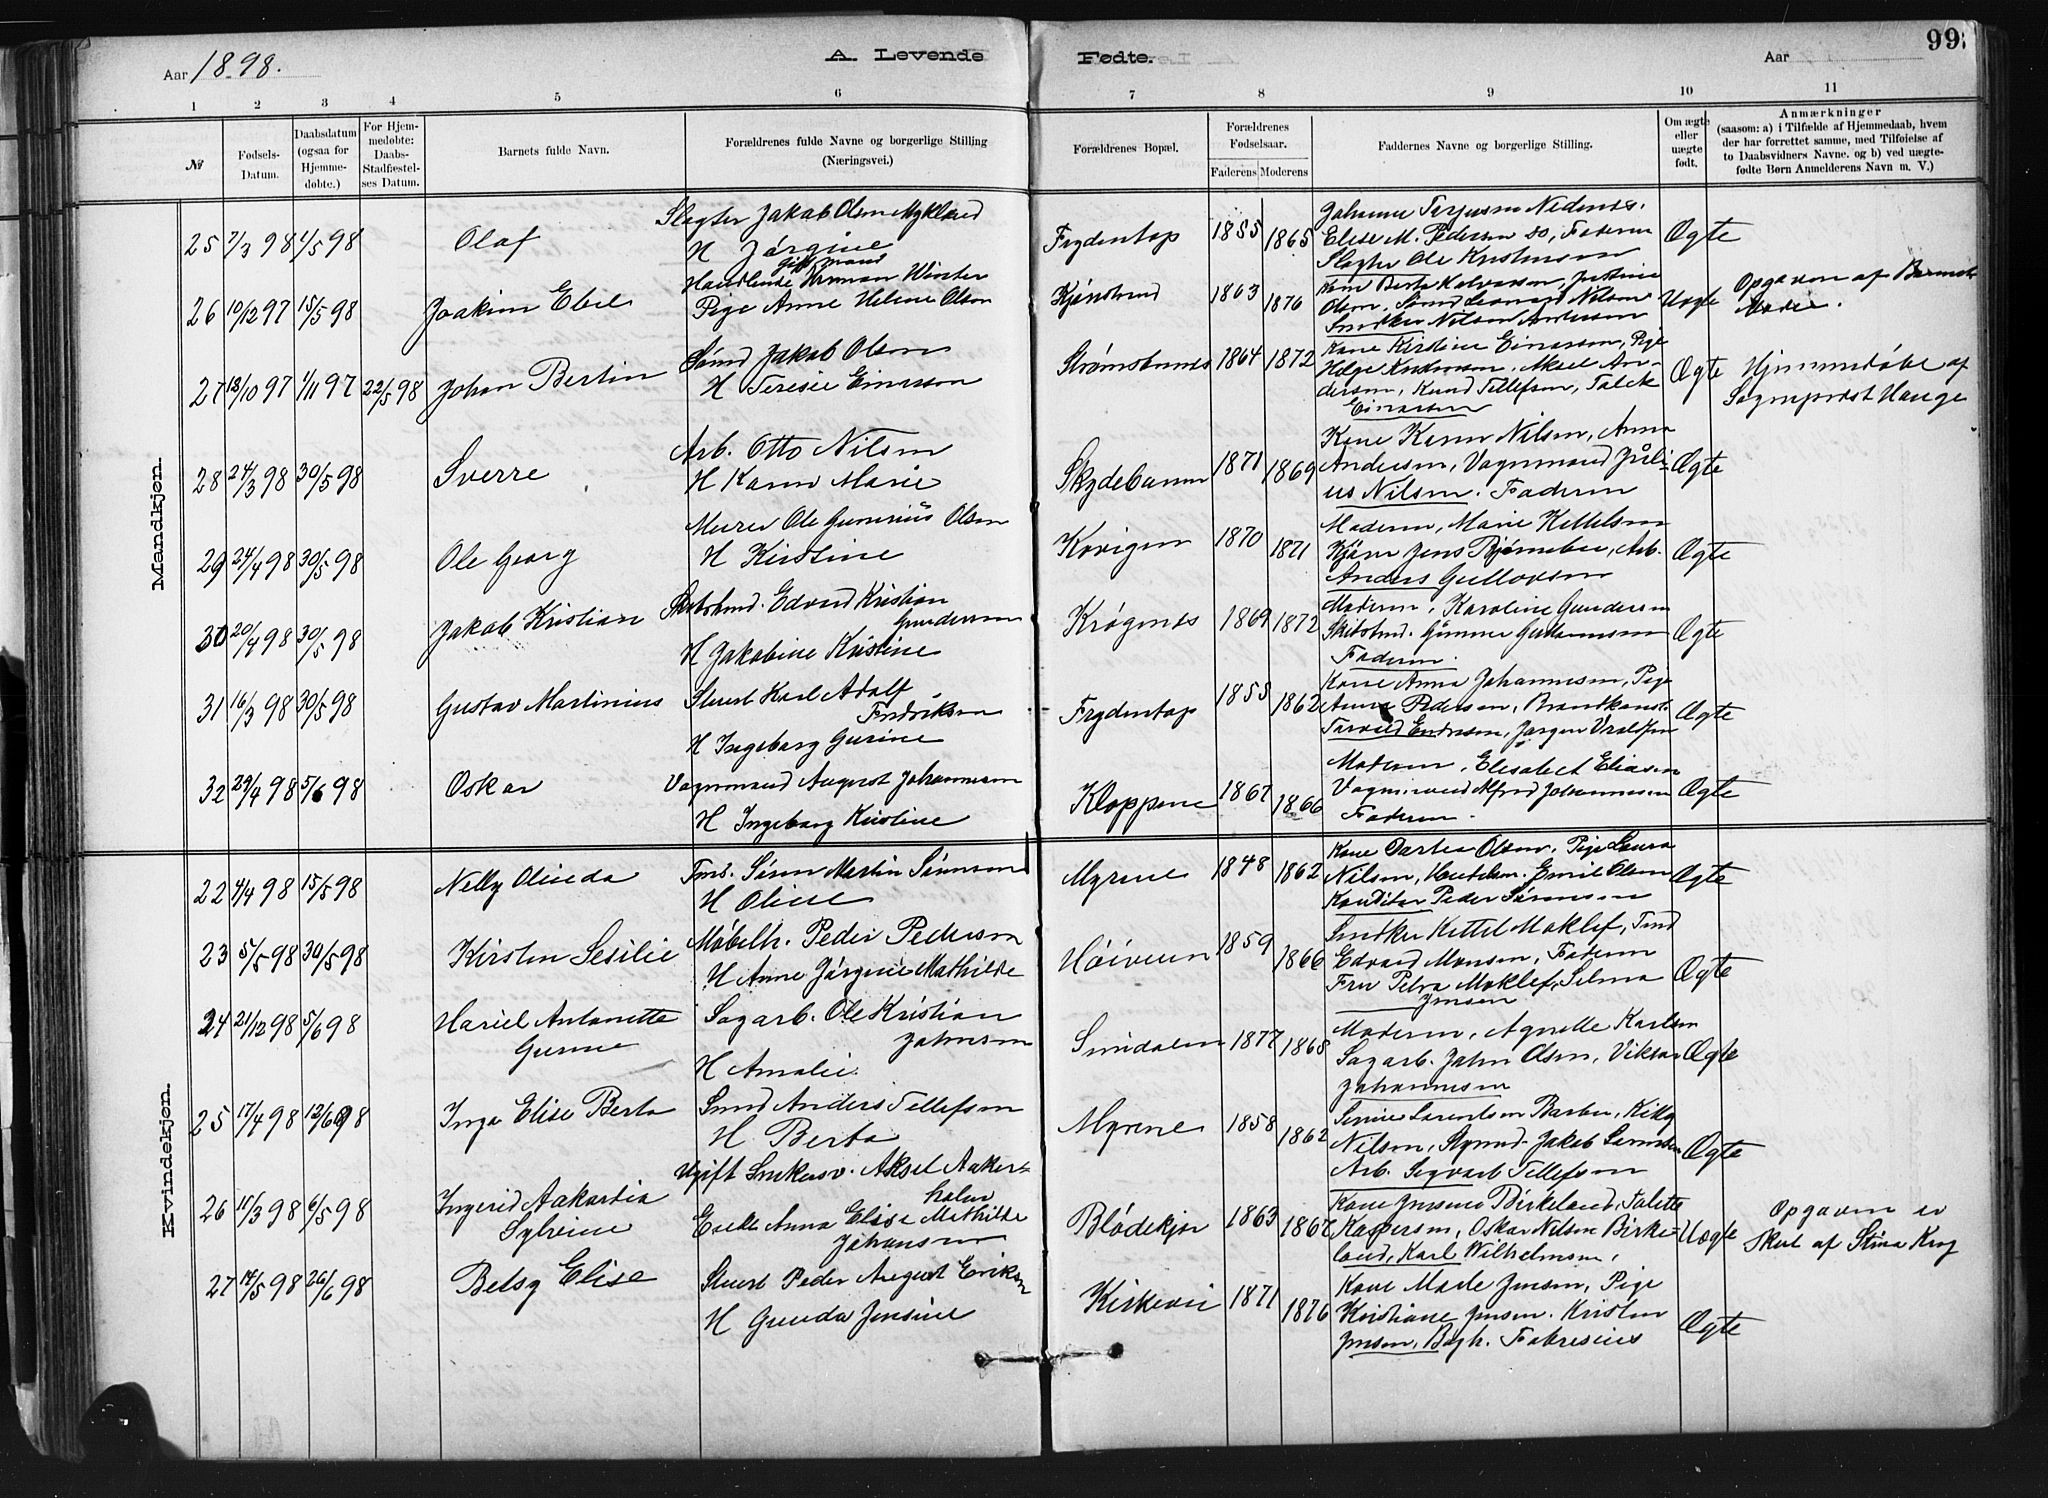 Aar 1898.
A. Levende
Fødte.
Aar
99.
1 2 3 4 5 6 7 8 9 10 11
№
Fødsels-Datum.
Daabsdatum (ogsaa for Hjemme-døbte.)
For Hjem-medøbte: Daabs-Stadfæstel-ses Datum.
Barnets fulde Navn.
Forældrenes fulde Navne og borgerlige Stilling (Næringsvei.)
Forældrenes Bopæl.
Forældrenes Fødselsaar.
Faderens Moderens
Faddernes Navne og borgerlige Stilling.
Om ægte eller uægte født.
Anmærkninger
(saasom: a) i Tilfælde af Hjemmedaab, hvem
der har forrettet samme, med Tilføielse af
to Daabsvidners Navne. og b) ved uægte-
fødte Børn Anmelderens Navn m. V.)
Mandkjøn.
25 7/3 98 1/5 98 Olaf
Slagter Jakob Olsen Mykland
H Jørgine
Frydentop 1855 1865
Elise M. Pedersen do, Faderen
Slagter Ole Kristensen
Ægte
26 10/12 97 15/5 98 Joakim Elie
gift mand
Handlende Herman Winter
Pige Anne Helene Olsen
1863 1876
Uægte
Opgaven af
27 13/10 97 1/11 97 22/5 98 Johan Bertin
Sømd Jakob Olsen
H Teresie Einersen
Strømsbunes 1864 1872
Kone Kirstine Einersen, Pige
Helge Anderssen, Aksel An-
dersen, Knud Tellefsen, Talek
Einarsen
Ægte
Hjemmedøbt af
Sogneprest Hauge
28 24/3 98 30/5 98 Sverre
Arb. Otto Nilsen
H Karen Marie
Skydebanen 1871 1869
Kone Karen Nilsen, Anna
Andersen, Vognmand Juli-
us Nilsen. Faderen
Ægte
29 24/4 98 30/5 98 Ole Georg
Murer Ole Gunerius Olsen
H Kirstine
1870 1871
Moderen, Marie Kittelsen
Jens Bjørnebu, Arb.
Anders Gullovsen
Ægte
30 20/4 98 30/5 98 Jakob Kristian
Edvard Kristian
Gundersen
H Jakobine Kristine
Krøgenes 1869 1872
Moderen, Karoline Gundersen
Faderen.
Ægte
31 16/3 98 30/5 98 Gustav Martinius
Stuert Karl Adolf
Fredriksen
H Ingeborg Gurine
Frydentop 1855 1862
Kone Anna Johannesen, Pige
Anna Pedersen, Brandkonst.
Endresen, Jørgen
Ægte
32 29/4 98 5/6 98 Oskar
Vognmand August Johannesen
H Ingeborg Kristine
Kloppene 1867 1866
Moderen, Elisabet Eliasen
Vognmand Alfred Johannesen
Faderen.
Ægte
Kvindekjøn.
22 4/4 98 15/5 98 Nelly Olieda
Søren Martin Sørensen
H Oliese
Myrene 1848 1862
Kone Dortea Olsen, Pige Laura
Nilsen, Emil Olsen
Konditor Peder Sørensen
Ægte
23 5/5 98 30/5 98 Kirsten Sesilie
Møbelh. Peder Pedersen
H Anne Jørgine Mathilde
1859 1866
Snedker Kittel Moklef,
Edvard Monsen, Faderen
Fru Petra Moklef, Selma
Jensen
Ægte
24 21/12 98 5/6 98 Hariel Antonette
Gurine
Sagarb. Ole Kristian
Johnsen
H Amalie
1877 1868
Moderen, Agnette Karlsen
Sagarb. John Olsen, Viktor
Johannesen
Ægte
25 17/4 98 12/6 98 Inga Elise Berta
Smed Anders Tellefsen
H Berta
Myrene 1858 1862
Lorentsen Barbu, Kitty
Nilsen, Jakob
Arb. Tellefsen
Ægte
26 11/3 98 6/5 98 Ingerid
Sylvine
Ugift Snekersv. Aksel Aaker-
holm
Enke Anna Elise Mathilde
Johansen
Blødekjer 1863 1867
Kone Birkeland, Talette
Kaspersen, Oskar Nilsen Birke-
land, Karl Wilhelmsen,
Uægte
Opgaven er
Skul af Stina Krog
27 14/5 98 26/6 98 Betsy Elise
Stuert Peder August Eriksen
H Gunda Jensine
Kirkevei 1871 1876
Kone Marie Jensen, Pige
Kristiane Jensen. Kristen
Jensen, Bogh. Fabresius
Ægte